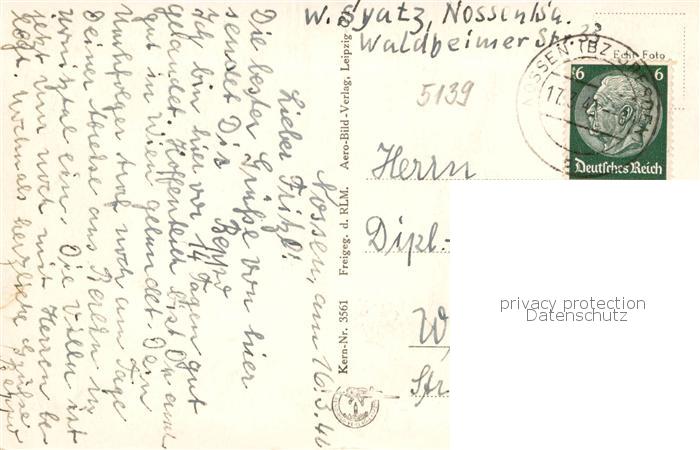 W. Syatz, Nossen i. Sa.
Waldheimer Str. 33
Echt Foto
5139
NOSSEN (BZ. DRESDEN)
17.
6 6
Deutsches Reich
Herrn
Dipl.-
W
Str.
Kern-Nr. 3561 Freigeg. d. RLM. Aero-Bild-Verlag, Leipzig
Nossen, am 16.3.40
Lieber Fritzl!
Die besten Grüße von hier
sendet Dir Beppo
Ich bin hier vor 14 Tagen gut
gelandet. Hoffentlich bist Du auch
gut in Wien gelandet. Dein
Nachfolger traf noch am Tage
Deiner Abreise aus Berlin in
ein. Die Villa ist
jetzt nur noch mit Herren be
legt. Nochmals herzliche Grüße
Beppo
privacy protection
Datenschutz